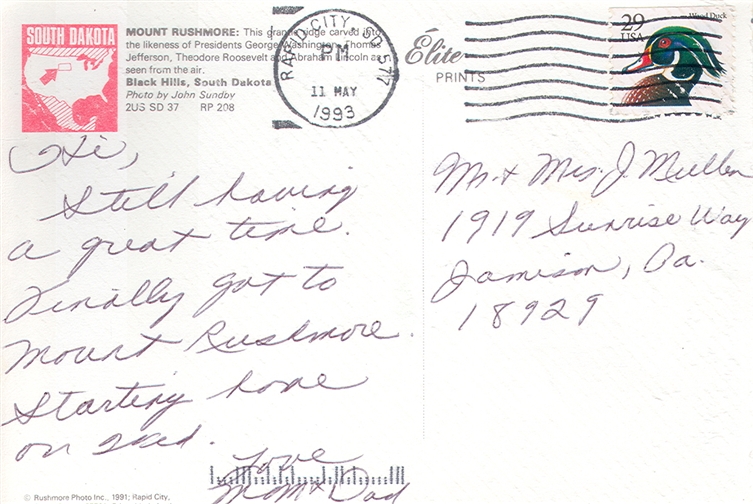 SOUTH DAKOTA
MOUNT RUSHMORE: This granite ridge carved into
the likeness of Presidents George Washington, Thomas
Jefferson, Theodore Roosevelt and Abraham Lincoln as
seen from the air.
Black Hills, South Dakota
Photo by John Sundby
2US SD 37 RP 208
RAPID CITY, SD 577
PM
11 MAY
1993
Elite
PRINTS
29
USA
Wood Duck
Hi,
Still having
a great time.
Finally got to
Mount Rushmore.
Starting home
on
Love
Mom & Dad
Mr. & Mrs. J. Mullen
1919 Sunrise Way
Jamison, Pa.
18929
© Rushmore Photo Inc., 1991; Rapid City,